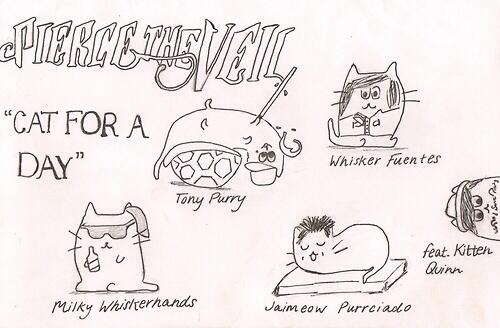 PIERCE THE VEIL
"CAT FOR A
DAY"
Whisker Fuentes
Tony Purry
feat. Kitten
Quinn
Milky Whiskerhands
Jaimeow Purrciado